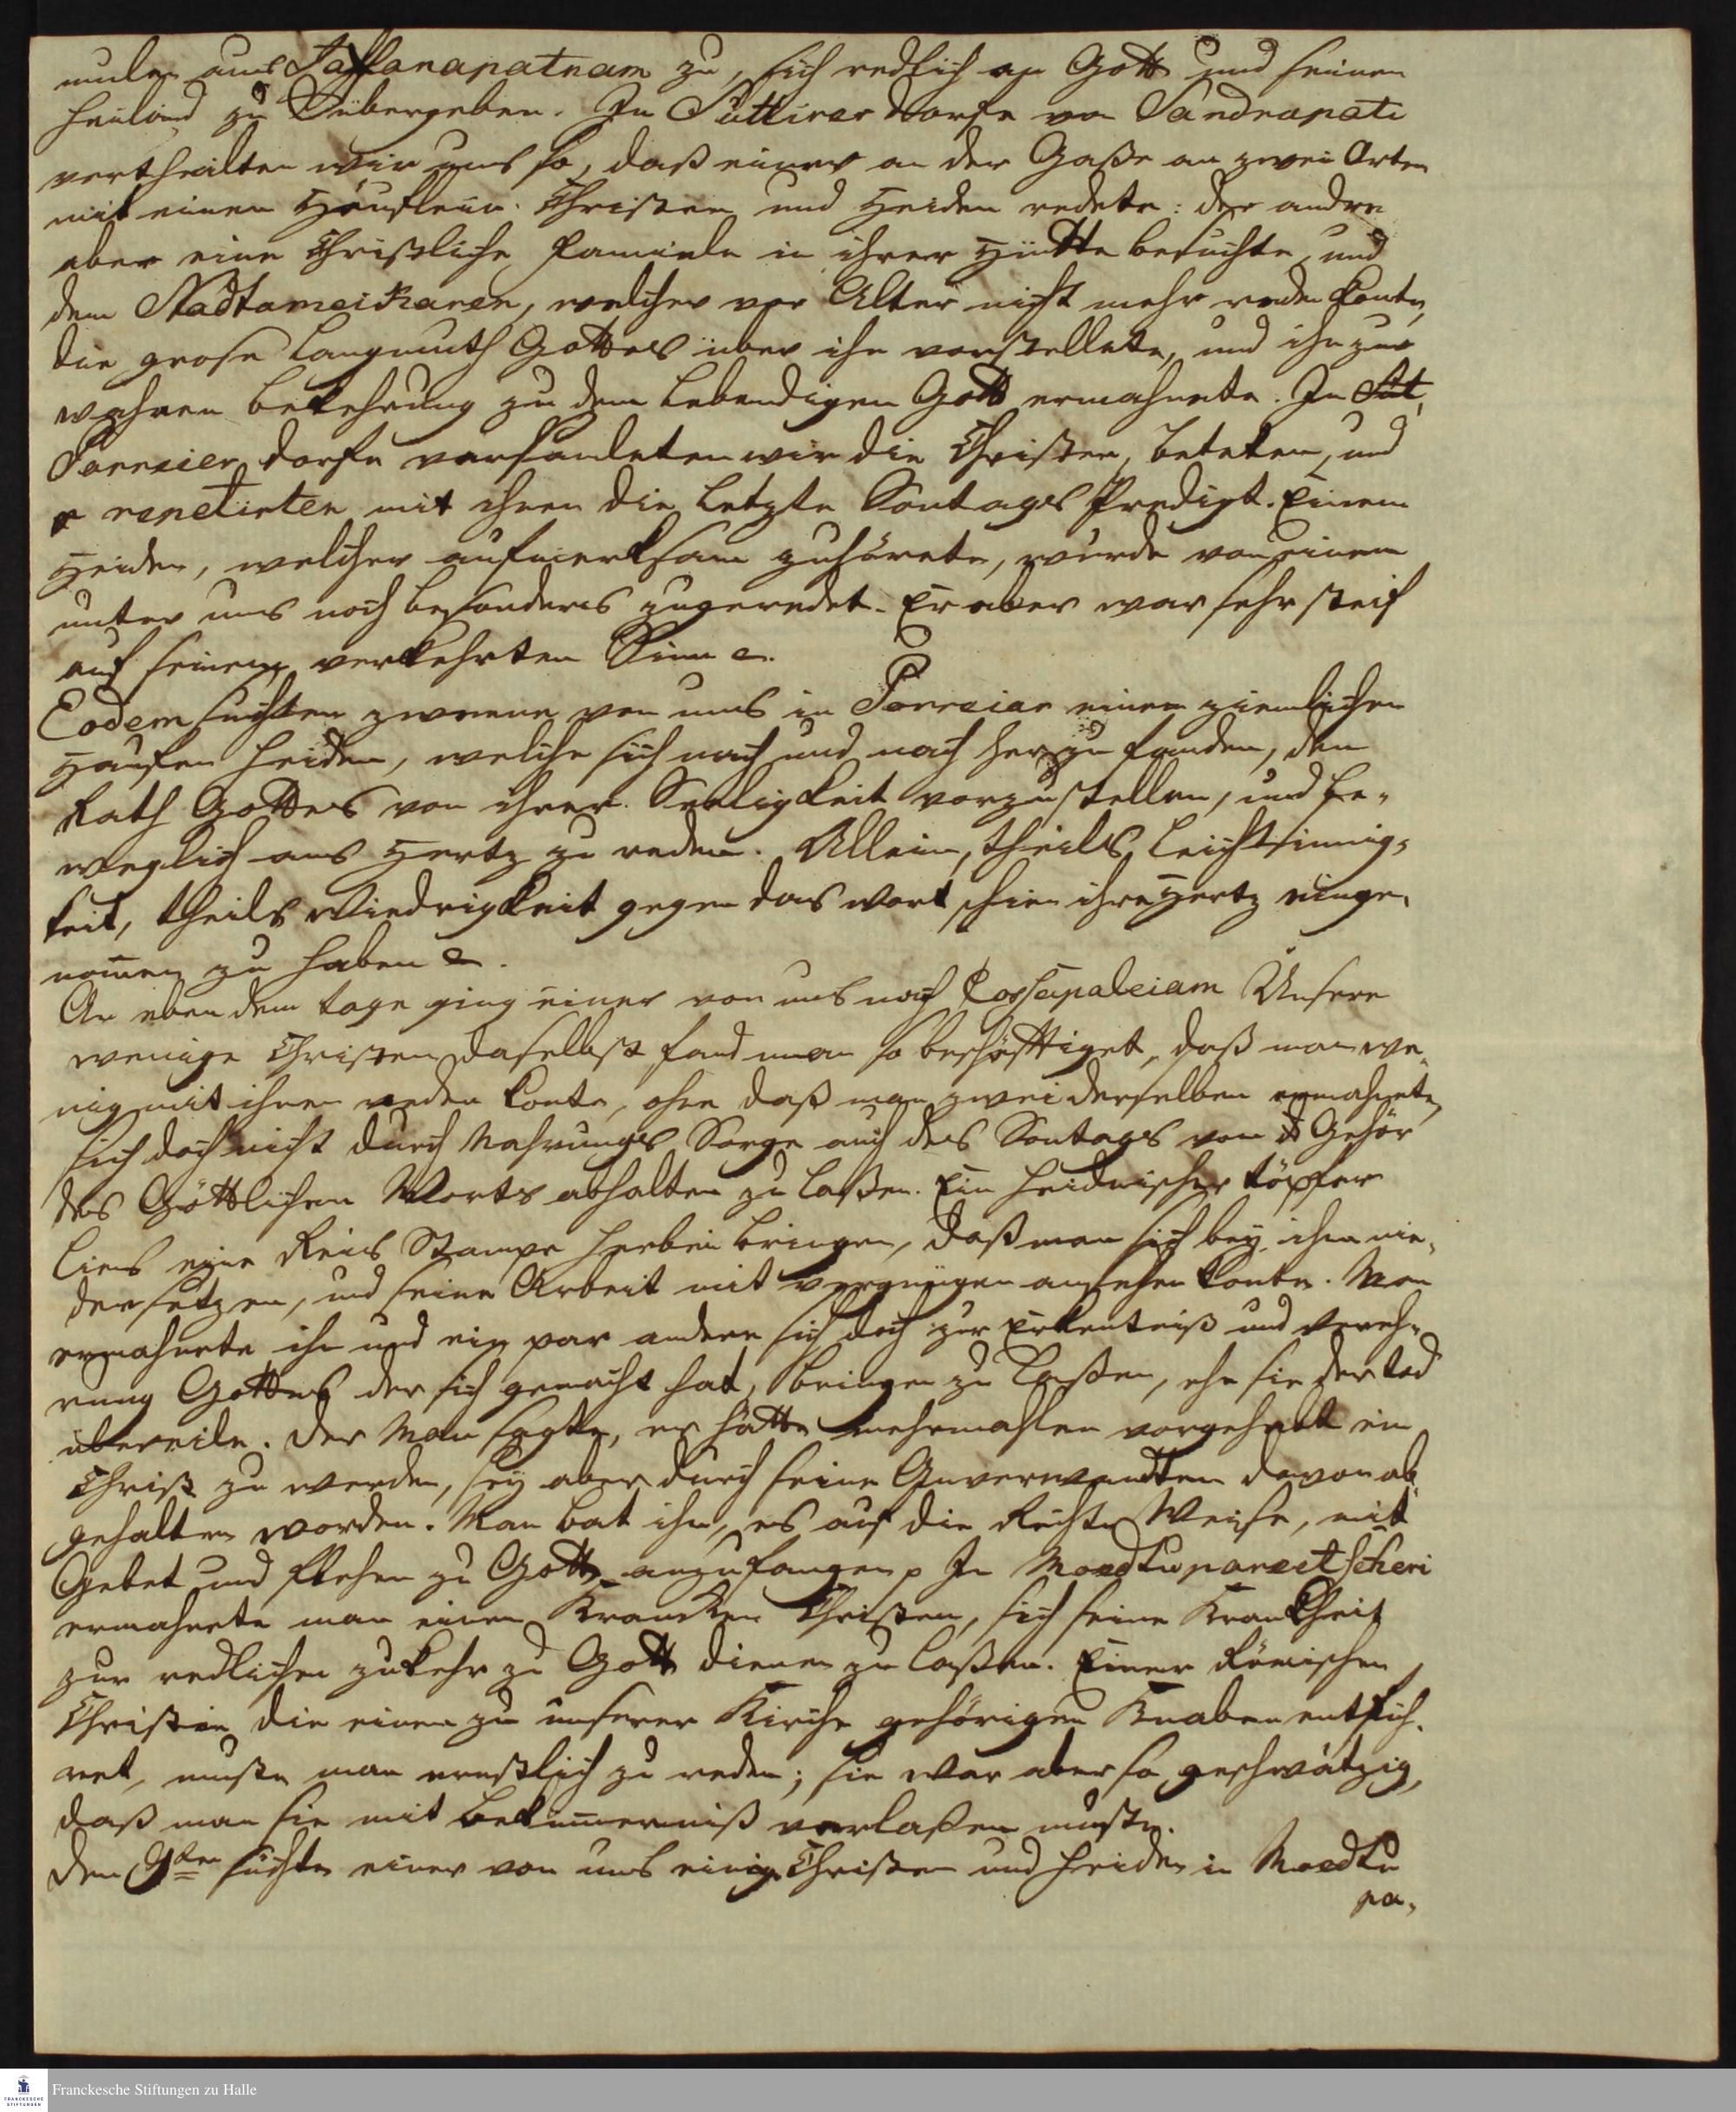 aus Jaffanapatnam zu, sich redlich an Gott und seinen
Heiland zu übergeben. In Suttirer dorfe von Sandrapati
vertheilten wir uns so, daß einer an der Gaße an zwei Orten
mit einem Häuflein Christen und Heiden redete: der andre
aber eine Christliche Familie in ihrer Hütte besuchte, und
dem Nádtameikaren, welcher vor Alter nicht mehr reden konte,
die grose Langmuth Gottes über ihn vorstellete, und ihn zur
wahren Bekehrung zu dem Lebendigen Gott ermahnete. In
Parreier dorfe versamleten wir die Christen, beteten, und
repetirten mit ihnen die letzte Sontags Predigt. Einem
Heiden, welcher aufmerksam zuhörete, wurde von einem
unter uns noch besonders zugeredet. Er aber war sehr steif
auf seinem verkehrten Sinn
Eodem suchten zweene von uns in Porreiar einem ziemlichen
Haufen Heiden, welche sich nach und nach herzu fanden, den
Rath Gottes von ihrer Seeligkeit vorzustellen, und be-
weglich ans Hertz zu reden. Allein, theils Leichtsinnig-
keit, theils Wiedrigkeit gegen das Wort schien ihre Hertz einge-
nom̄en zu haben
An eben dem tage ging einer von uns nach Cossapaleiam Unsere
wenige Christen daselbst fand man so beschäfftiget, daß man we-
nig mit ihnen reden konte, ohne daß man zwei derselben ermahnete,
sich doch nicht durch Nahrungs Sorge auch des Sontags von Gehör
des Göttlichen Worts abhalten zu laßen. Ein heidnischer töpfer
lies eine Reis Stampe herbei bringen, daß man sich bey ihm nie-
dersetzen, und seine Arbeit mit vergnügen ansehen konte. Man
ermahnete ihn und ein par andere sich doch zur Erkentniß und Vereh-
rung Gottes der sich gemacht hat, bringen zu laßen, ehe sie der tod
übereile. Der Man sagte, er hätte mehrmahlen vorgehabt ein
Christ zu werden, sey aber durch seine Anverwandten davon ab-
gehalten worden. Man bat ihn, es auf die Rechte Weise, mit
Gebet und flehen zu Gott anzufangen In Moedtupareitscheri
ermahnete man einen Krancken Christen, sich seine Krankheit
zur redlichen zukehr zu Gott dienen zu laßen. Einer Römischen
Christin die einen zu unserer Kirche gehörigen Knaben entfüh-
ret, muste man ernstlich zu reden; sie war aber so geschwätzig,
daß man sie mit Bekümmerniß verlaßen muste.
Den 9ten suchte einer von uns einige Christen und Heiden in Moedtu
pa-
Franckesche Stiftungen zu Halle